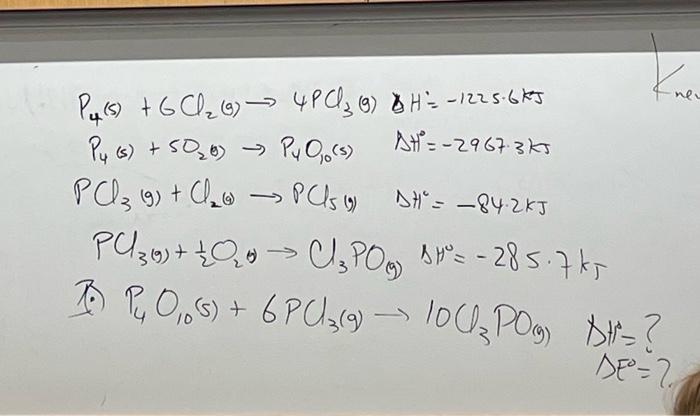 P₄(s) + 6Cl₂(g) → 4PCl₃(g) ΔH° = -1225.6 kJ
P₄(s) + 5O₂(g) → P₄O₁₀(s) ΔH° = -2967.3 kJ
PCl₃(g) + Cl₂(g) → PCl₅(g) ΔH° = -84.2 kJ
PCl₃(g) + ½O₂(g) → Cl₃PO(g) ΔH° = -285.7 kJ
P₄O₁₀(s) + 6PCl₃(g) → 10Cl₃PO(g) ΔH° = ?
ΔE° = ?